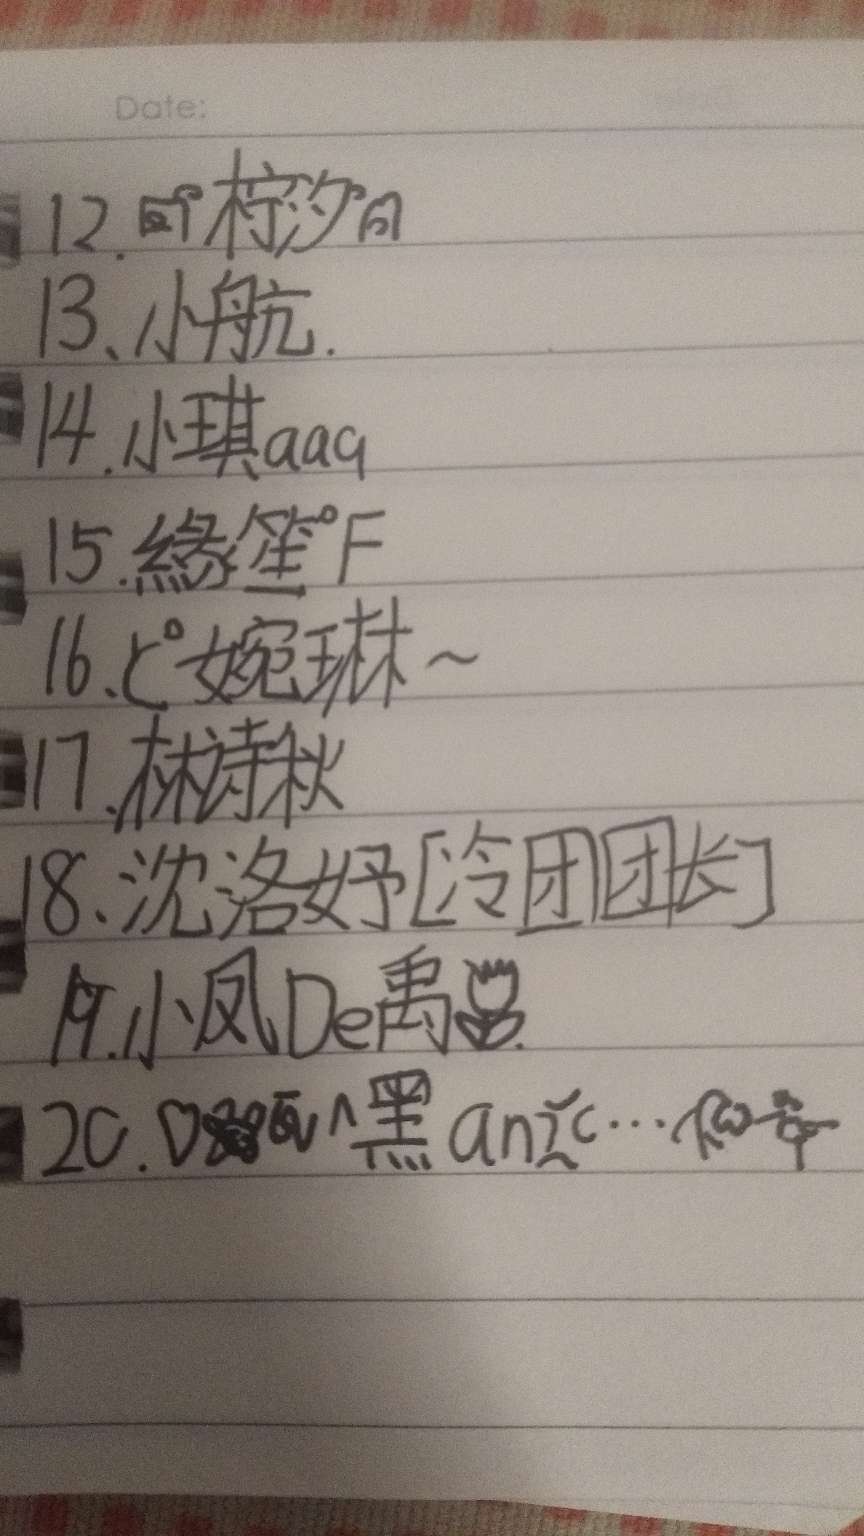 Date:
12. 柠汐
13、小航.
14.小琪aaa
15.緣笙°F
16、ピ婉琳~
17、林诗秋
18、沈洛妤[冷团团长]
19.小凤De禹
20. 黑 an